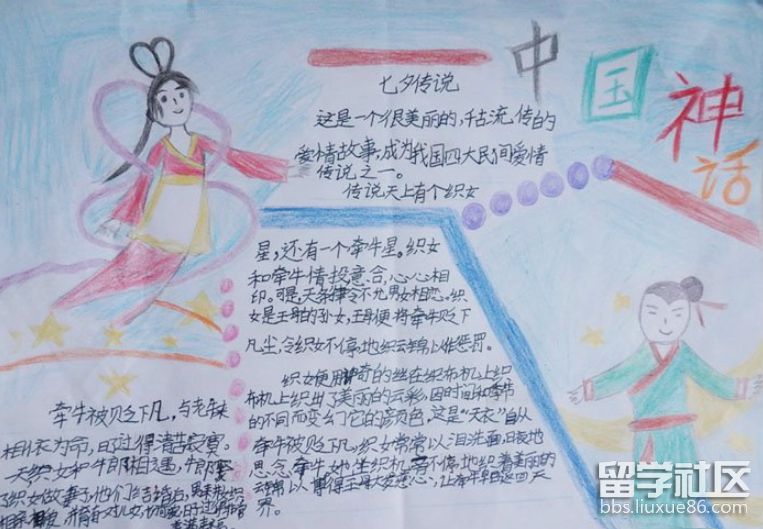 中国神话
七夕传说
这是一个很美丽的,千古流传的
爱情故事,成为我国四大民间爱情
传说之一。
传说天上有个织女
星,还有一个牵牛星。织女
和牵牛情投意合,心心相
印。可是,天条律令不允男女相恋。织
女是王母的孙女,王母便将牵牛贬下
凡尘,令织女不停地织云锦以作惩罚。
织女便用神奇的丝在织布机上织
布机上织出了美丽的云彩,因时间和季节
的不同而变幻它的颜色,这是“天衣”自从
牵牛被贬之下凡,织女常常以泪洗面,日夜地
思念牵牛她坐织机旁不停地织着美丽的
云锦以博得王母大发慈心,让牵牛早日返回天
界。
牵牛被贬之下凡,与老牛
相依为命,日子过得清苦寂寞。
一天织女和牛郎相遇,牛郎
了织女做妻子,他们结婚后,男耕女织
相亲相爱,
留学社区
bbs.liuxue86.com